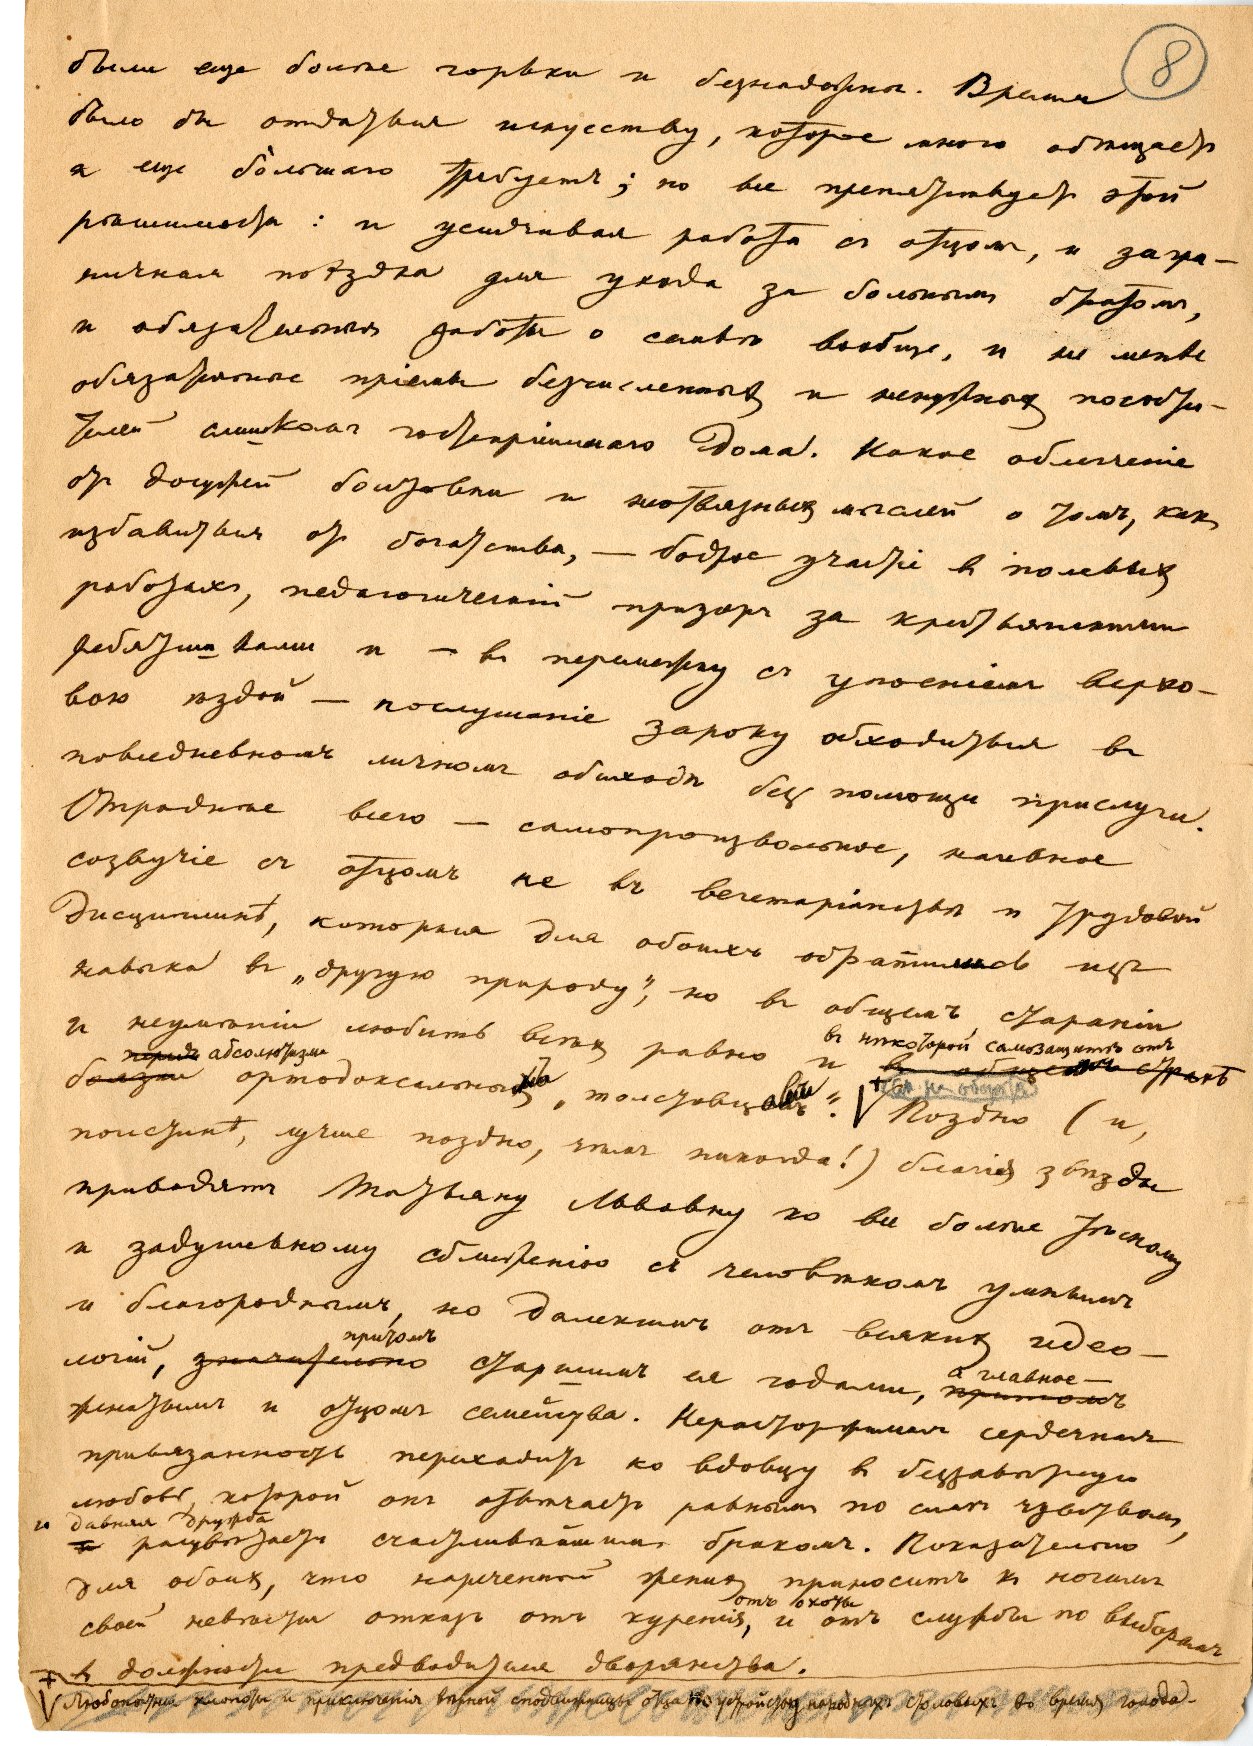 8
были еще более горьки и безнадежны. Время
было бы отдаться искусству, которое много обѣщаетъ
а еще бо́льшаго требуетъ; но все препятствуетъ этой
рѣшимости: и усидчивая работа съ отцомъ, и загра-
ничная поѣздка для ухода за больнымъ братомъ,
и обязательныя заботы о семьѣ вообще, и не менѣе
обязательные пріемы безчисленныхъ и ненужныхъ посѣти-
телей слишкомъ гостепріимнаго дома. Какое облегченіе
отъ досужей болтовни и неотвязныхъ мыслей о томъ, какъ
избавиться отъ богатства, — бодрое участіе въ полевыхъ
работахъ, педагогическій призоръ за крестьянскими
ребятишками и — въ перемежку съ упоеніемъ верхо-
вою ѣздой — послушаніе зароку обходиться въ
повседневномъ личномъ обиходѣ безъ помощи прислуги.
Отраднѣе всего — самопроизвольное, наивное
созвучіе съ отцомъ не въ вегетаріанствѣ и трудовой
дисциплинѣ, которыя для обоихъ обратились изъ
навыка въ „другую природу", но въ общемъ стараніи
и неумѣніи любить всѣхъ равно и
въ нѣкоторой самозащитѣ отъ
въ общемъ страхѣ
передъ абсолютизма
боязни ортодоксальной „толстовщины". Поздно (и,
поистинѣ, лучше поздно, чѣмъ никогда!) благія звѣзды
приводятъ Татьяну Львовну ко все болѣе тѣсному
и задушевному сближенію съ человѣкомъ умнымъ
и благороднымъ, но далекимъ отъ всякихъ идео-
причомъ
логій, значительно старшимъ ея годами,
а главное —
притомъ
женатымъ и отцомъ семейства. Нерасторжимая сердечная
привязанность переходитъ ко вдовцу въ беззавѣтную
любовь, которой онъ отвѣчаетъ равнымъ по силѣ чувствомъ,
и давняя дружба
и расцвѣтаетъ счастливѣйшимъ бракомъ. Показательно
для обоихъ, что нареченный женихъ приноситъ къ ногамъ
отъ охоты
своей невѣсты отказъ отъ куренія, и отъ службы по выборамъ
въ должности предводителя дворянства.
Любопытны хлопоты и приключенія вѣрной сподвижницы отца по устройству народныхъ столовыхъ во время голода.